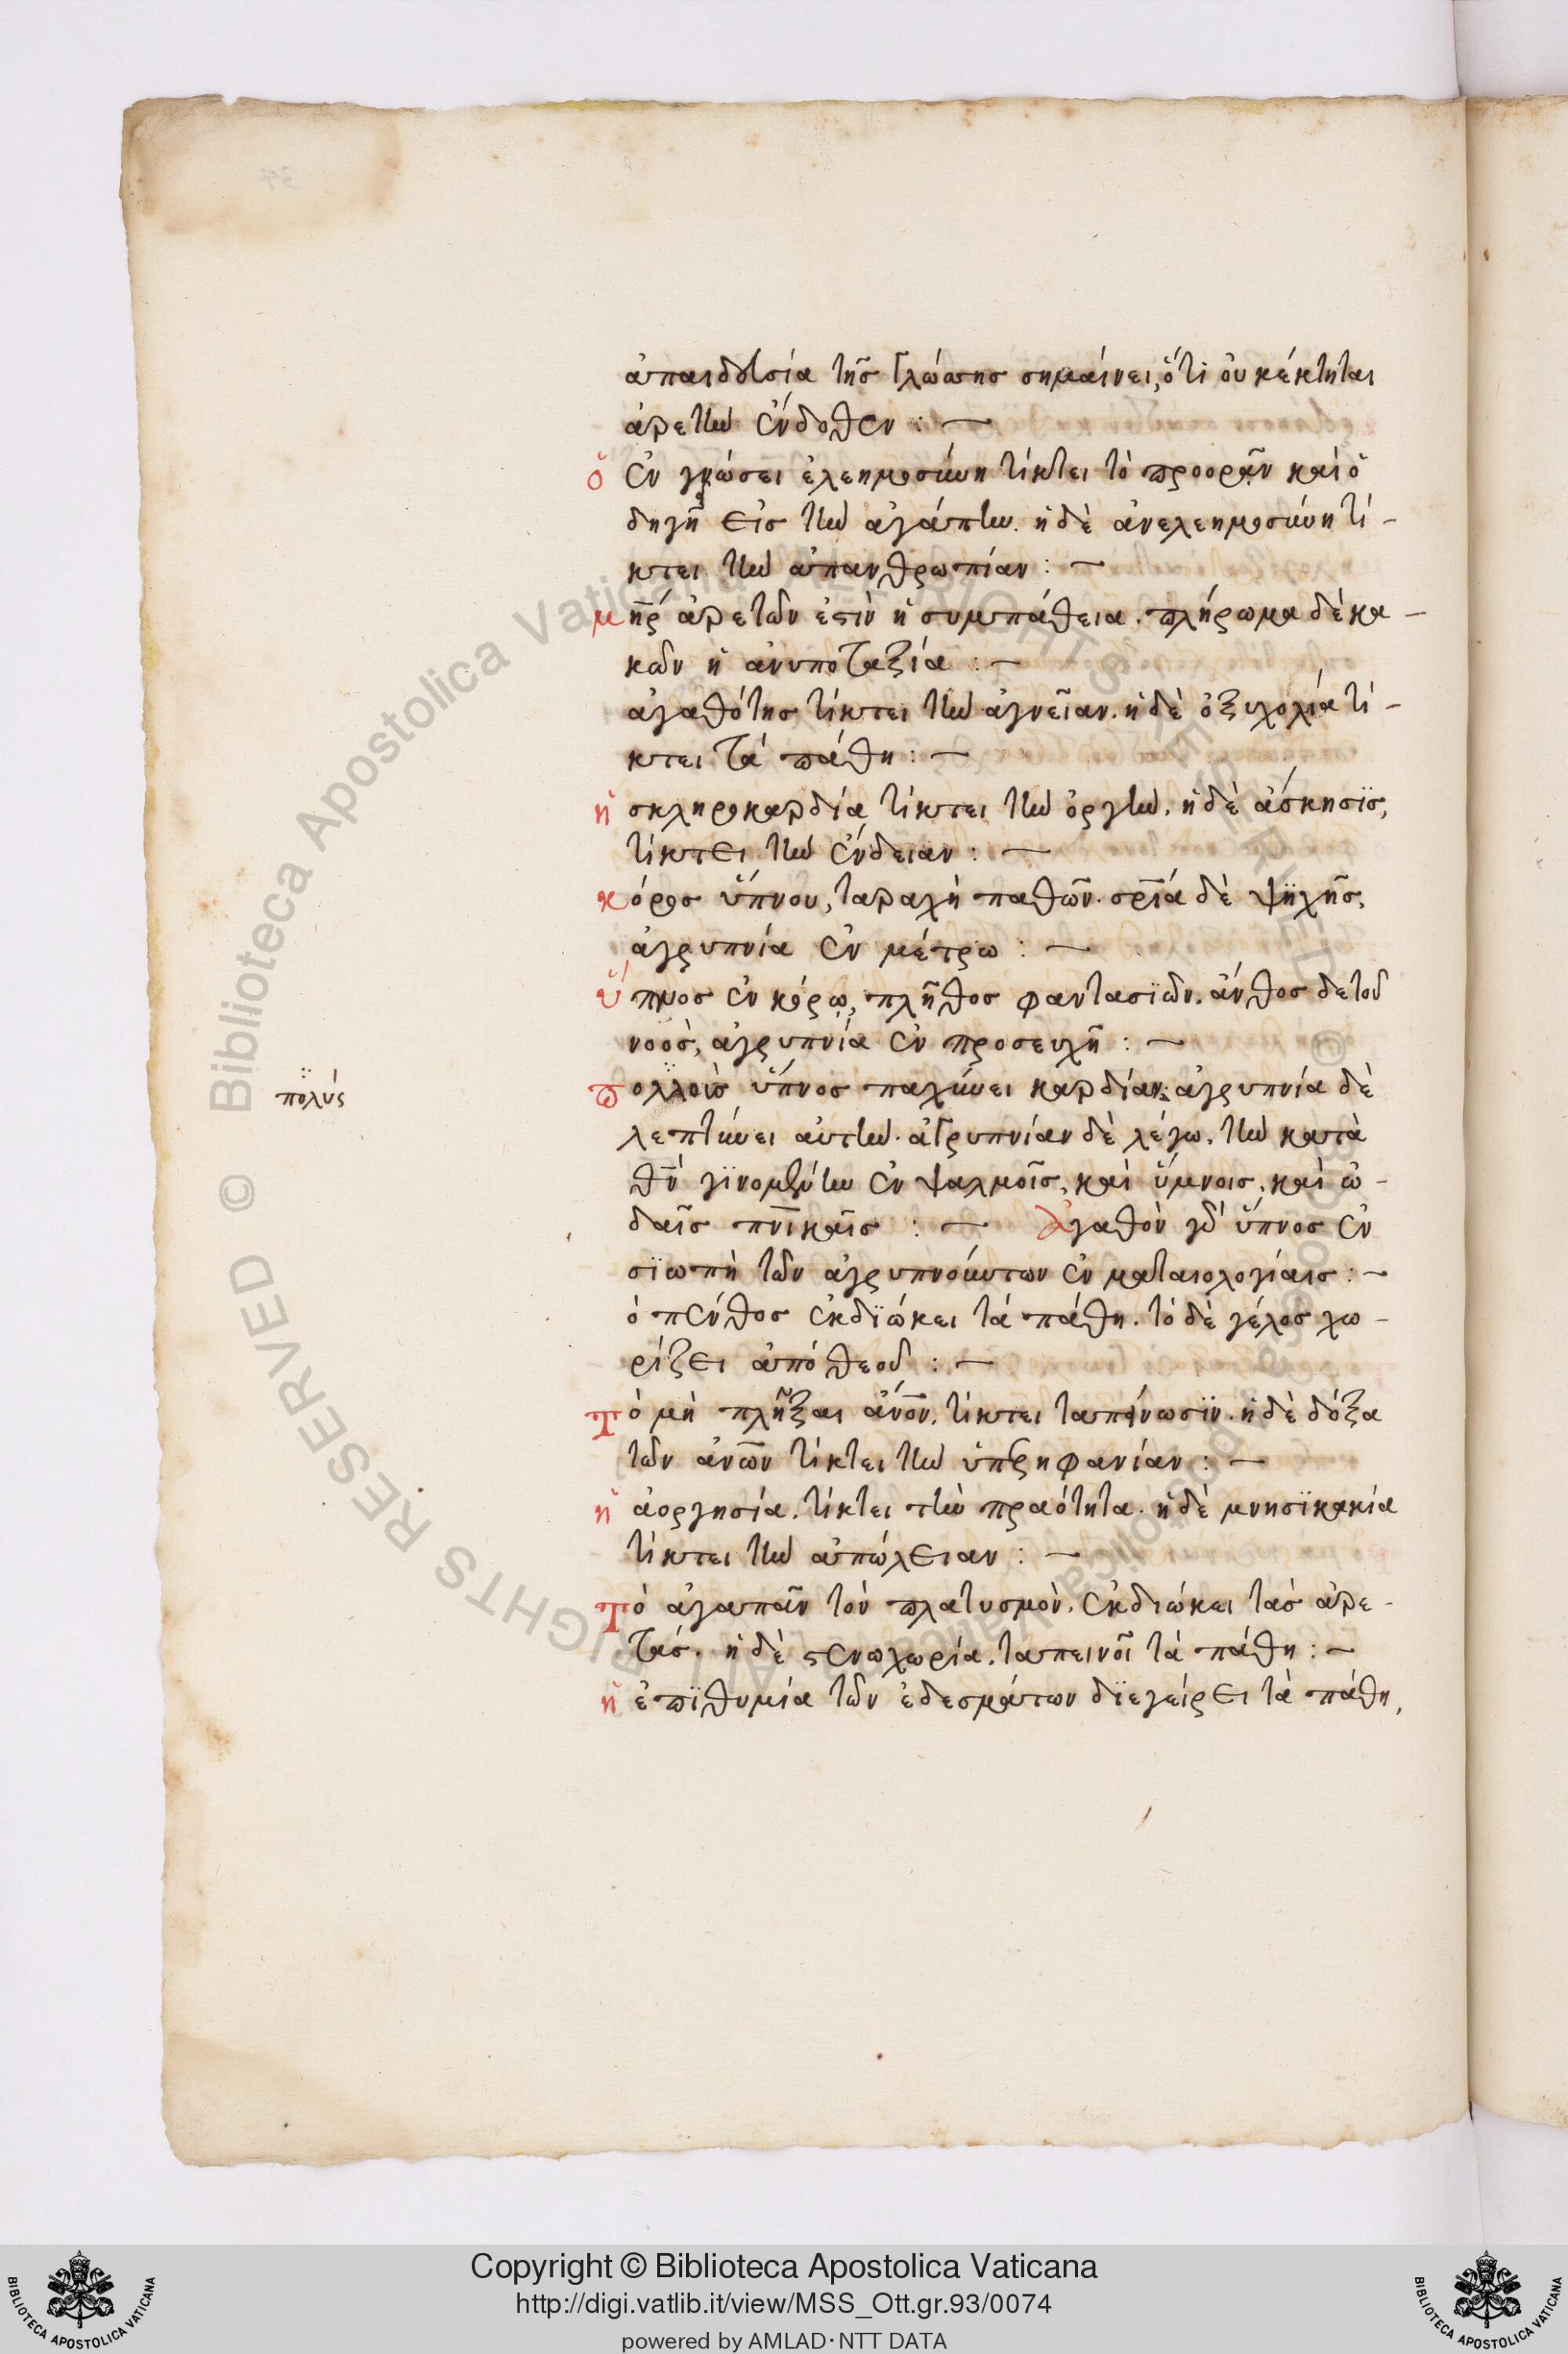 ἀπαιδευσία τῆς γλώσσης σημαίνει, ὅτι οὐ κέκτηται
ἀρετὴν ἔνδοθεν : —
ὁ ἐν γνώσει ἐλεημοσύνη τίκτει τὸ προορᾶν καὶ ὁ
δηγῇ εἰς τὴν ἀγάπην. ἡ δὲ ἀνελεημοσύνη τί -
κτει τὴν ἀπανθρωπίαν : —
μηρ̅ ἀρετῶν ἐστὶν ἡ συμπάθεια. πλήρωμα δὲ κα -
κῶν ἡ ἀνυποταξία : —
ἀγαθότης τίκτει τὴν ἁγνεῖαν. ἡ δὲ ὀξυχολία τί -
κτει τὰ πάθη : —
ἡ σκληροκαρδία τίκτει τὴν ὀργήν. ἡ δὲ ἄσκησϊς,
τίκτει τὴν ἔνδειαν : —
κόρος ὕπνου, ταραχὴ παθῶν. σρ̅ία δὲ ψϋχῆς,
ἀγρυπνία ἐν μέτρω : —
ὕπνος ἐν κόρω, πλῆθος φαντασϊῶν. ἄνθος δὲ τοῦ
νοὸς, ἀγρυπνία ἐν προσευχῆ : —
πολλοὺς ὕπνος παχύνει καρδίαν. ἀγρυπνία δὲ
πολύς
λεπτύνει αὐτήν. ἀγρυπνίαν δὲ λέγω, τὴν κατὰ
θν̅ γϊνομένην ἐν ψαλμοῖς, καὶ ὕμνοις, καὶ ὠ -
δαῖς πν̅ικαῖς : — Ἀγαθὸν γὰρ ὕπνος ἐν
σϊωπὴ τῶν ἀγρυπνούντων ἐν ματαιολογίαις : —
ὁ πένθος ἐκδϊώκει τὰ πάθη. τὸ δὲ γέλος χω -
ρίζει ἀπὸ θεοῦ : —
Τὸ μὴ πλῆξαι ἄν̅ον, τίκτει ταπείνωσϊν. ἡ δὲ δόξα
τῶν ἀν̅ων τίκτει τὴν ὑπερηφανίαν : —
ἡ ἀοργησία, τίκτει τὴν πραότητα. ἡ δὲ μνησϊκακία
τίκτει τὴν ἀπώλειαν : —
Τὸ ἀγαπᾶν τὸν πλατυσμὸν, ἐκδιώκει τὰς ἀρε -
τάς. ἡ δὲ στενοχωρία, ταπεινοῖ τὰ πάθη : —
ἡ ἐπϊθυμία τῶν ἐδεσμάτων δϊεγείρει τὰ πάθη,
Copyright © Biblioteca Apostolica Vaticana
http://digi.vatlib.it/view/MSS_Ott.gr.93/0074
powered by AMLAD·NTT DATA